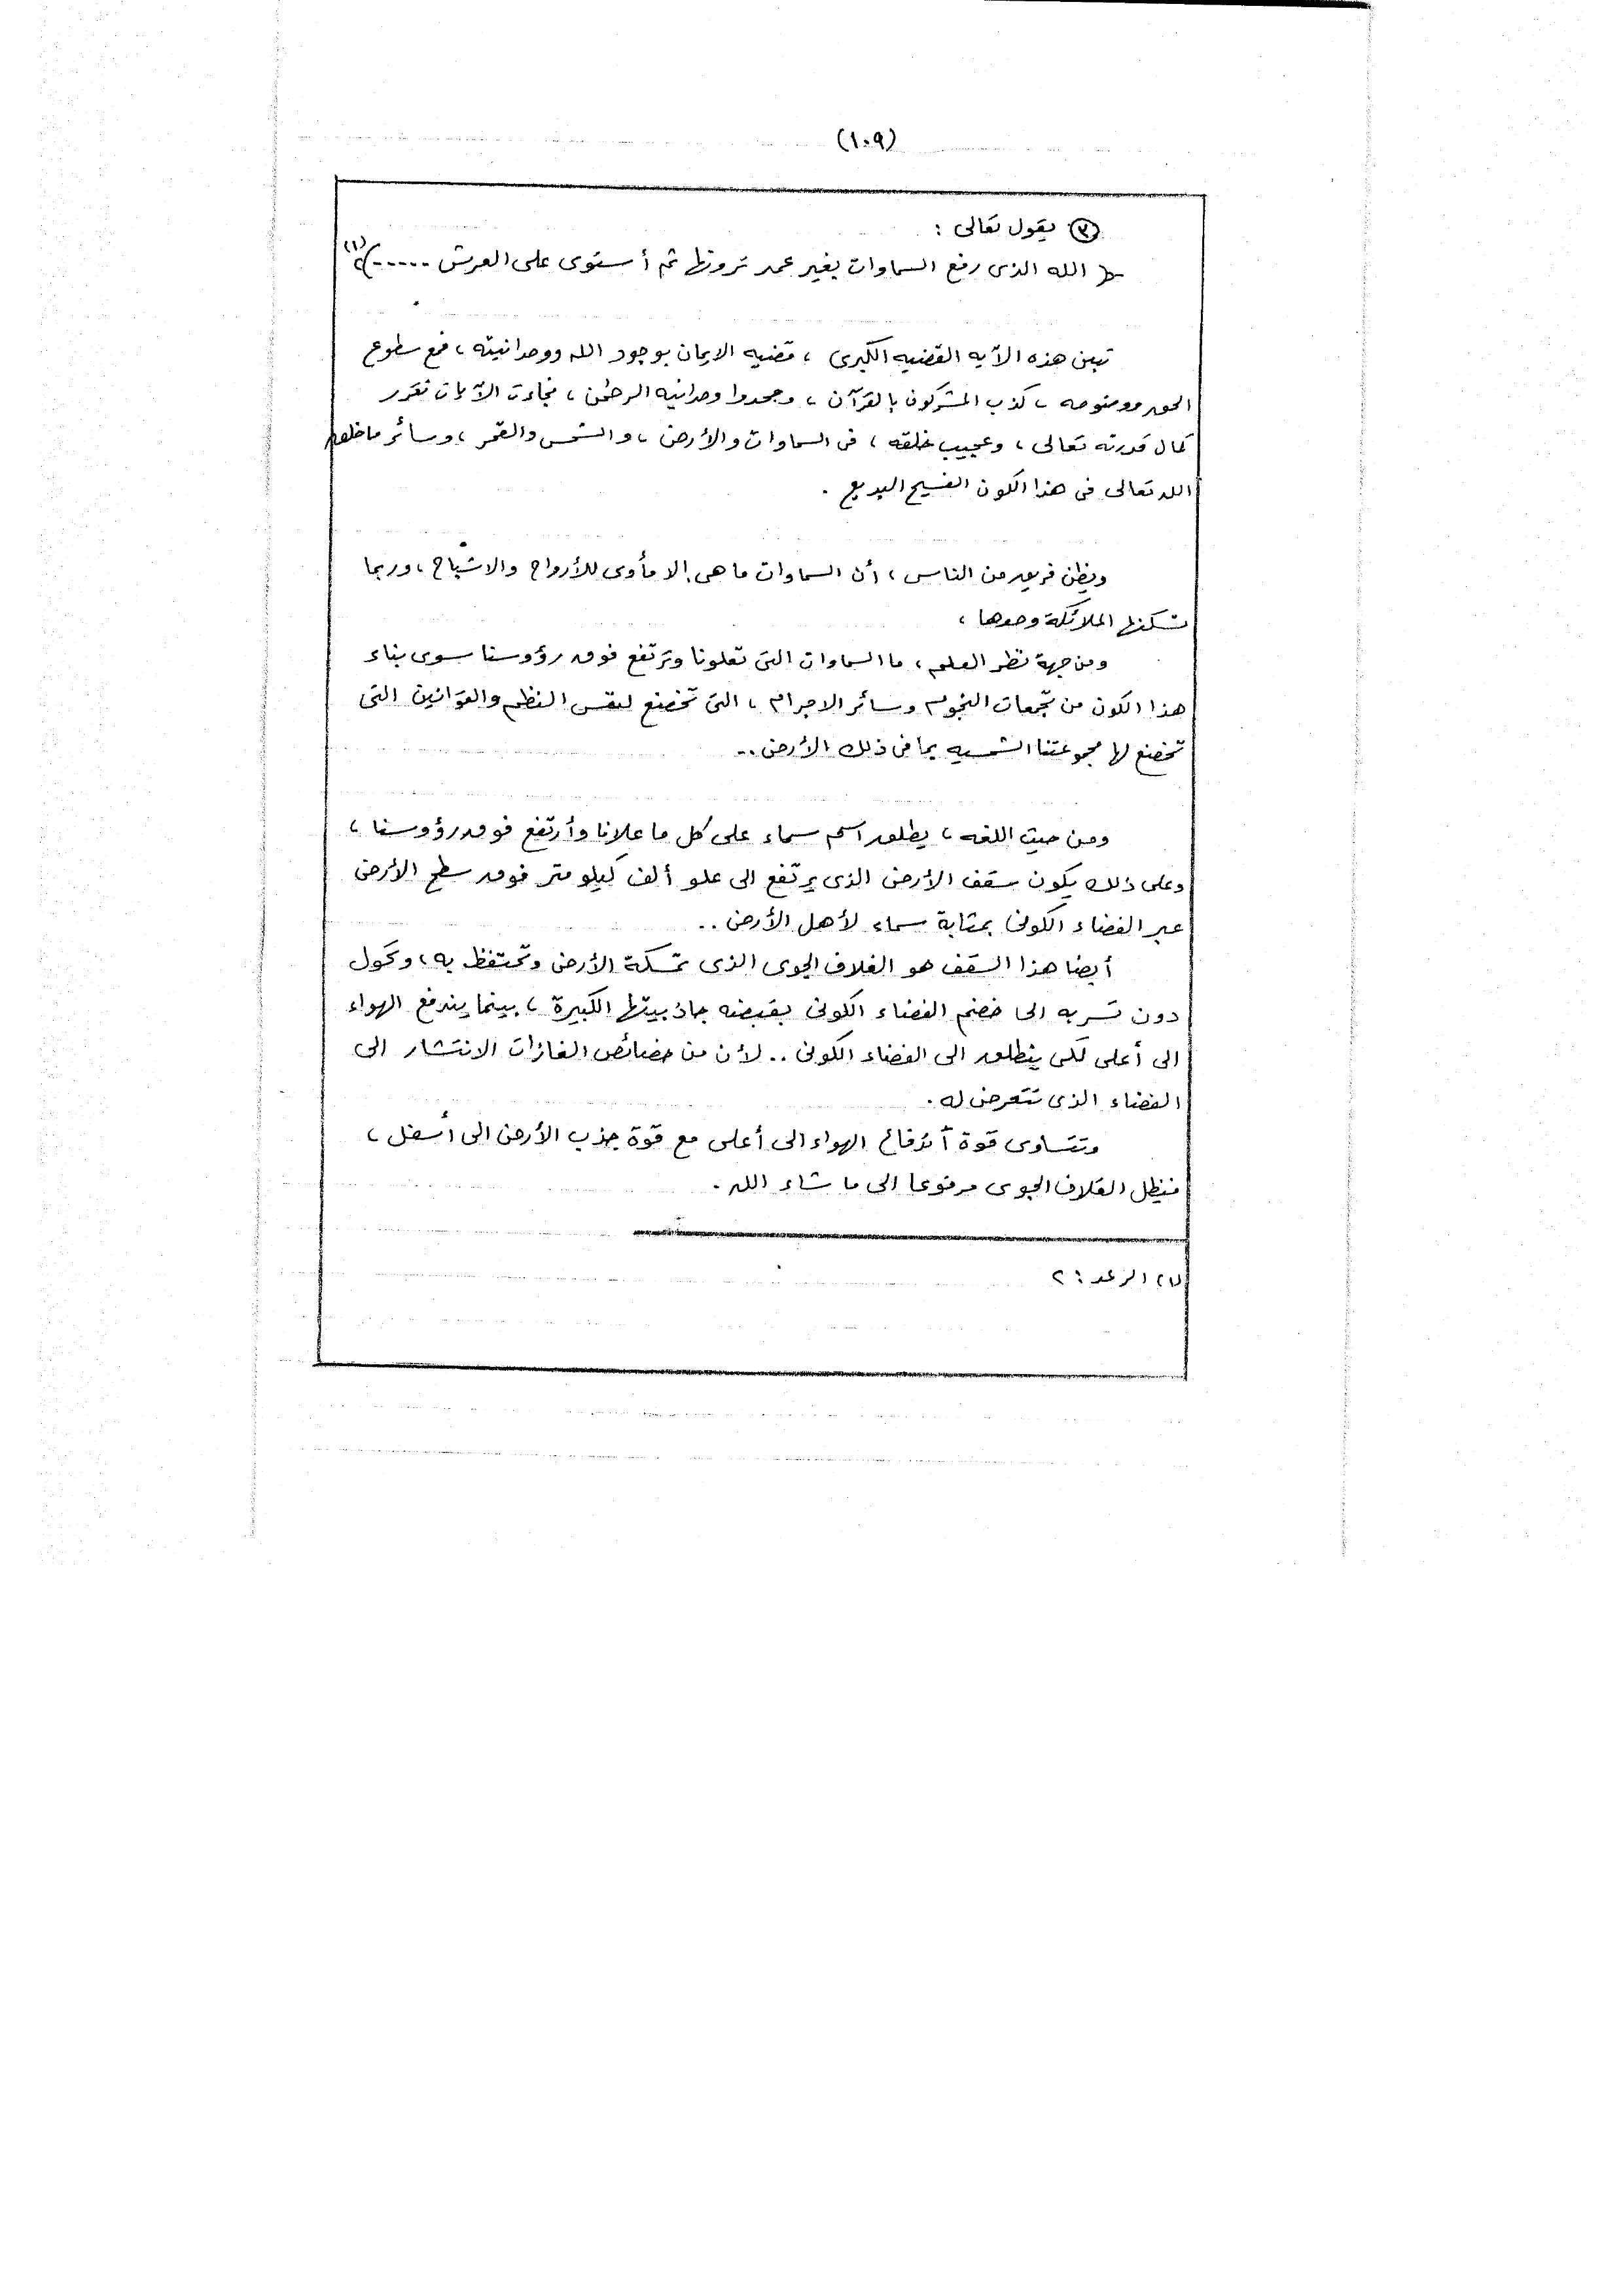 (١٠٩)
(٣) يقول تعالى :
﴿ الله الذى رفع السماوات بغير عمد ترونها ثم أستوى على العرش ......﴾(١)
تبين هذه الآيه القضيه الكبرى ، قضيه الايمان بوجود الله ووحدانيته ، فمع سطوع
الحق ووضوحه ، كذب المشركون بالقرآن ، وجحدوا وحدانيه الرحمن ، فجاءت الآيات تقرر
كمال قدرته تعالى ، وعجيب خلقه ، فى السماوات والأرض ، والشمس والقمر ، وسائر ما خلق
الله تعالى فى هذا الكون الفسيح البديع .
ويظن فريق من الناس ، أن السماوات ما هى إلا مأوى للأرواح والاشباح ، وربما
تسكنها الملائكة وحدها ،
ومن جهة نظر العلم ، ما السماوات التى تعلونا وترتفع فوق رؤوسنا سوى بناء
هذا الكون من تجمعات النجوم وسائر الاجرام ، التى تخضع لنفس النظم والقوانين التى
تخضع لها مجموعتنا الشمسيه بما فى ذلك الأرض ..
ومن حيث اللغه ، يطلق اسم سماء على كل ما علانا وأرتفع فوق رؤوسنا ،
وعلى ذلك يكون سقف الأرض الذى يرتفع الى علو ألف كيلو متر فوق سطح الأرض
عبر الفضاء الكونى بمثابة سماء لأهل الأرض ..
أيضا هذا السقف هو الغلاف الجوى الذى تمسكة الأرض وتحتفظ به ، وتحول
دون تسربه الى خضم الفضاء الكونى بقبضه جاذبيتها الكبيرة ، بينما يندفع الهواء
الى أعلى لكى ينطلق الى الفضاء الكونى .. لأن من خصائص الغازات الانتشار الى
الفضاء الذى تتعرض له .
وتتساوى قوة أندفاع الهواء الى أعلى مع قوة جذب الأرض الى أسفل ،
فيظل الغلاف الجوى مرفوعا الى ما شاء الله .
(١) الرعد : ٢